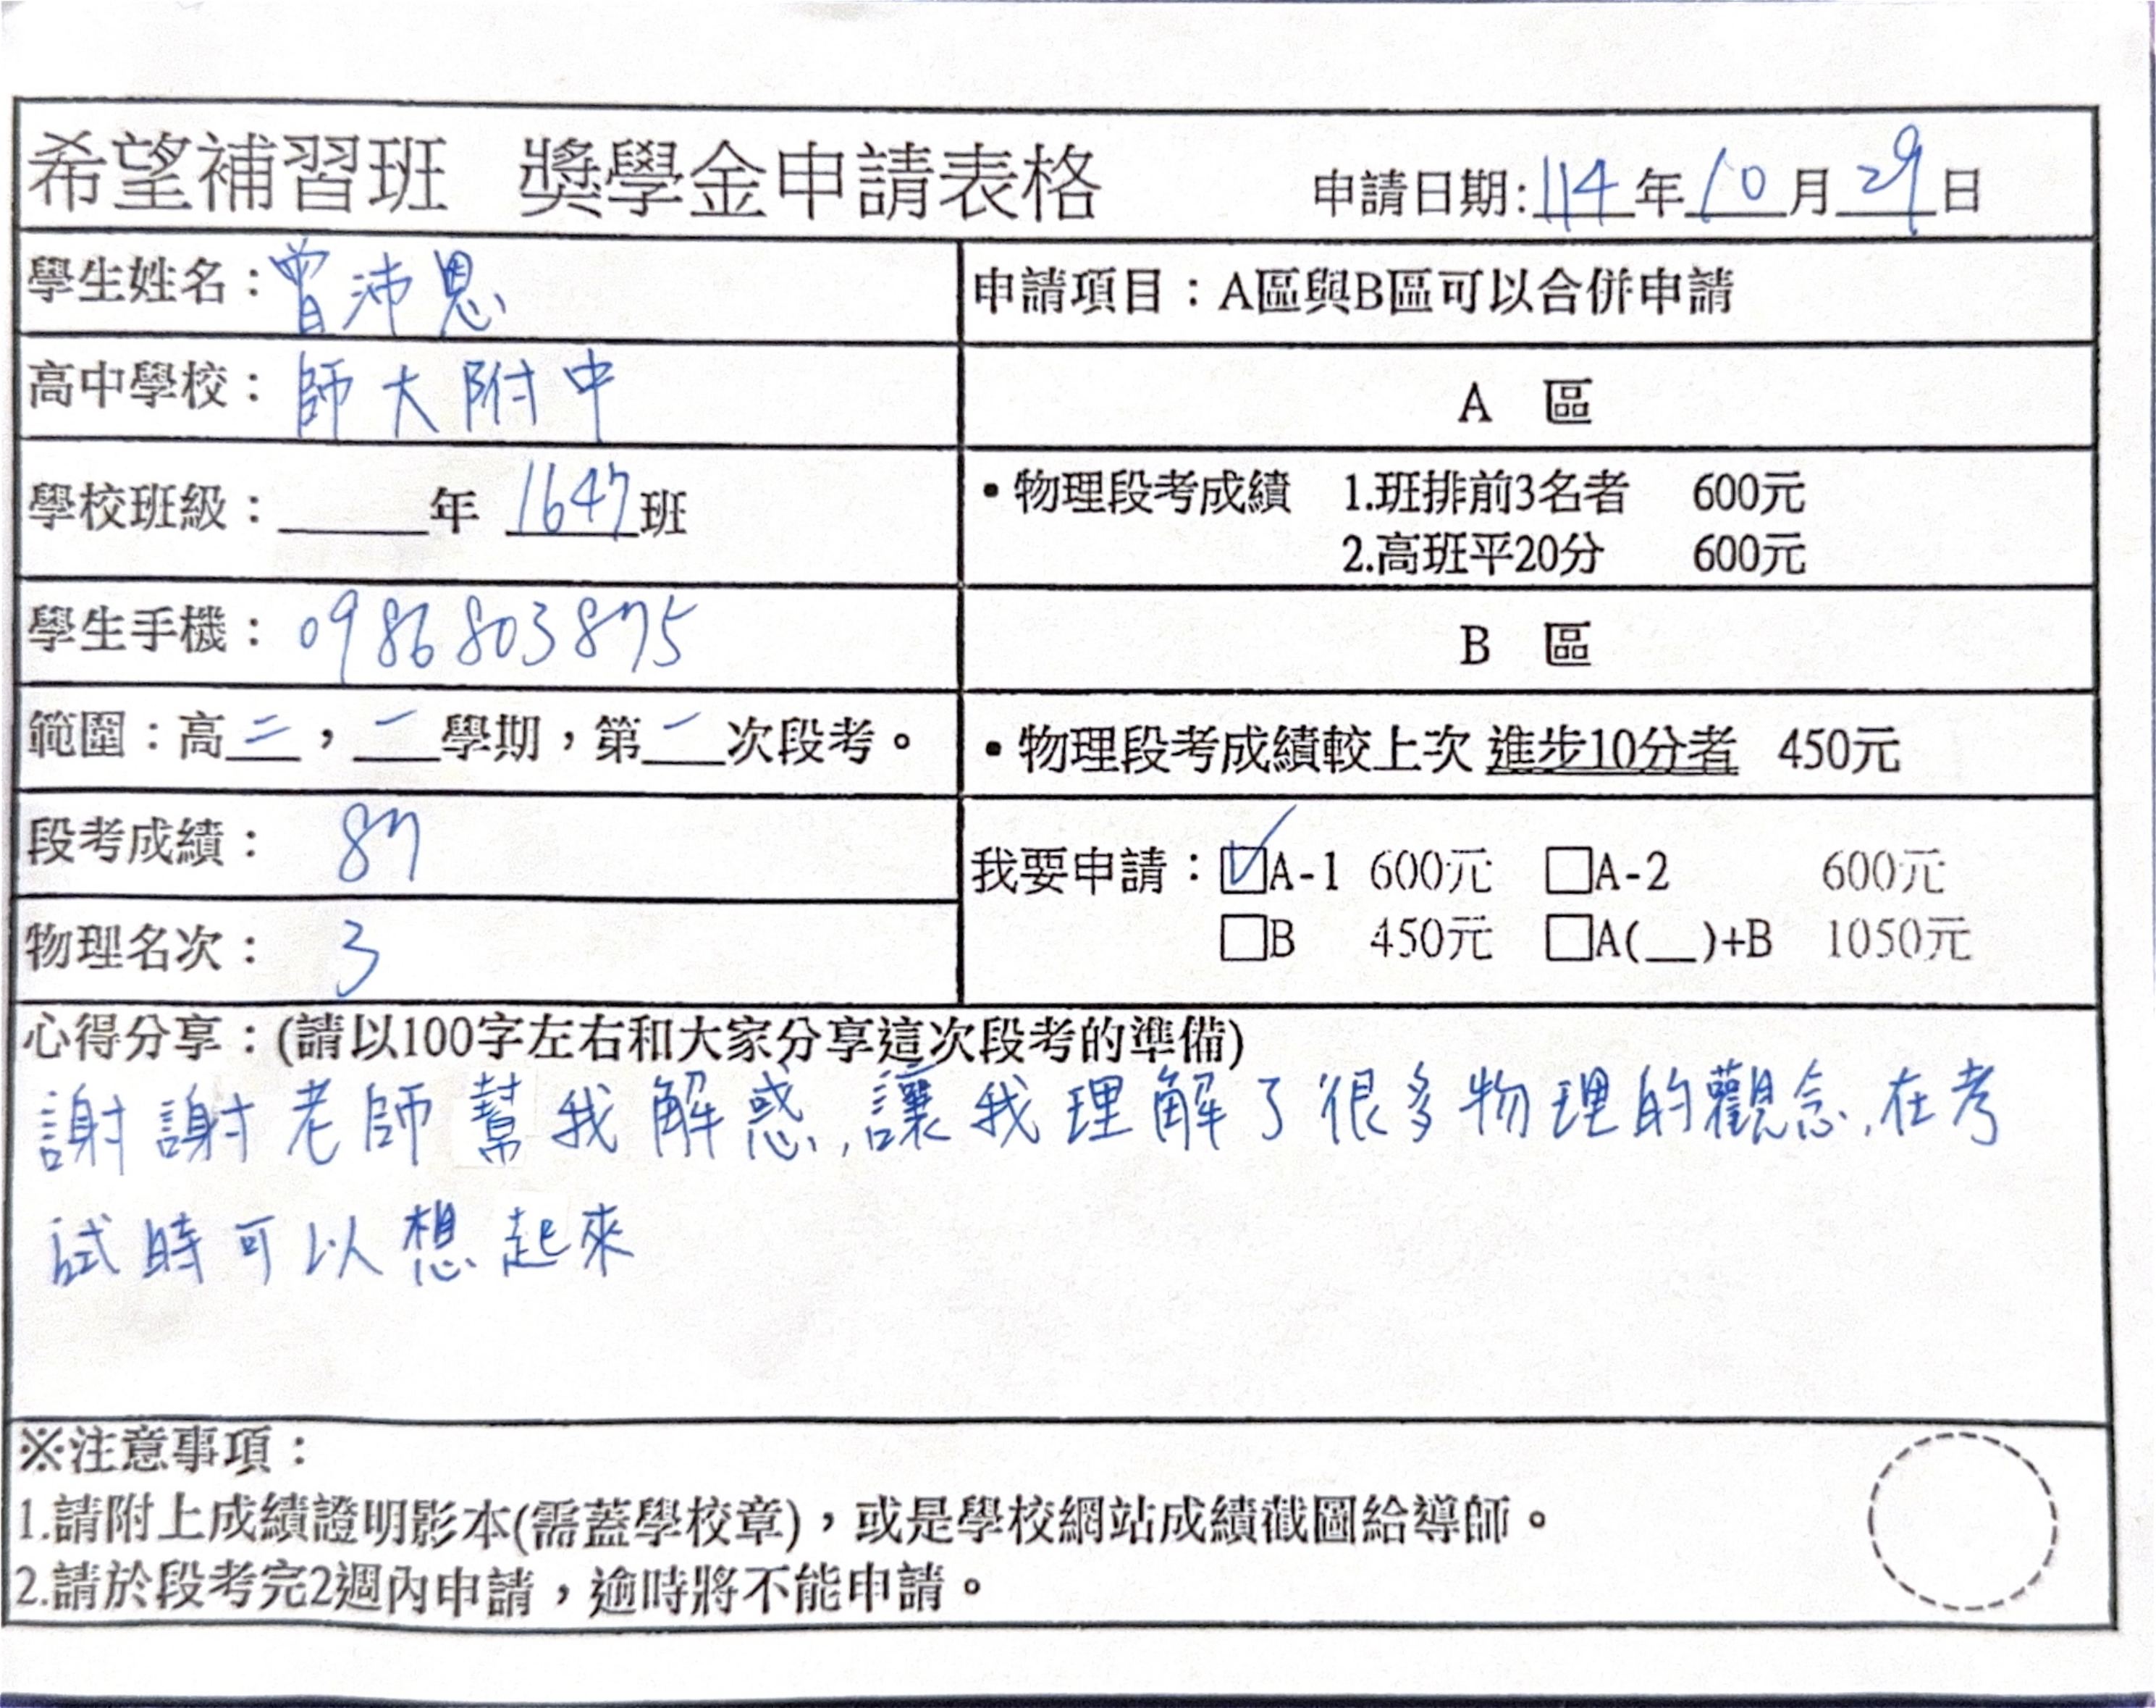 希望補習班 獎學金申請表格 申請日期:114年10月29日
學生姓名：曾沛恩
申請項目：A區與B區可以合併申請
高中學校：師大附中
A 區
學校班級：____年 1647班
•物理段考成績 1.班排前3名者 600元
2.高班平20分 600元
學生手機：0986803875
B 區
範圍：高二，一學期，第一次段考。
•物理段考成績較上次 進步10分者 450元
段考成績：87
我要申請：☑A-1 600元 □A-2 600元
□B 450元 □A(__)+B 1050元
物理名次：3
心得分享：(請以100字左右和大家分享這次段考的準備)
謝謝老師幫我解惑,讓我理解了很多物理的觀念,在考
試時可以想起來
※注意事項：
1.請附上成績證明影本(需蓋學校章)，或是學校網站成績截圖給導師。
2.請於段考完2週內申請，逾時將不能申請。